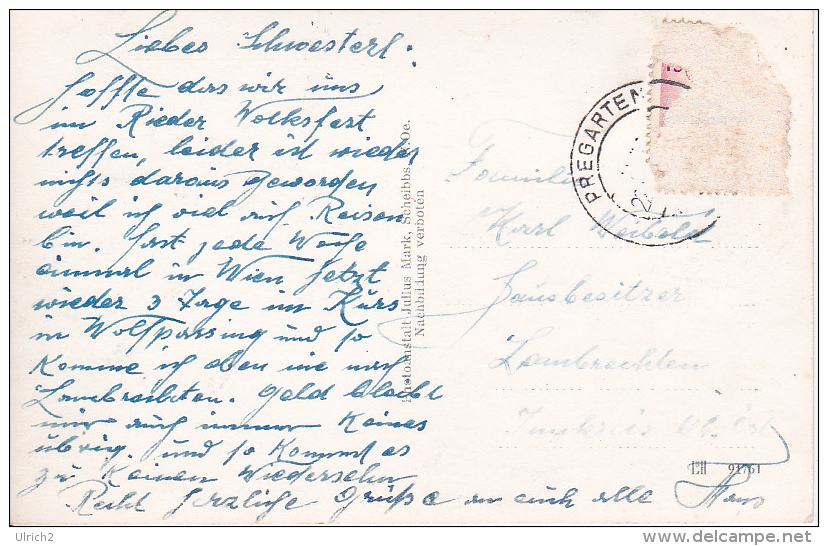 Liebes Schwesterl!
hoffte das wir uns
im Rieder Volksfest
treffen, leider ist wieder
nichts daraus geworden
weil ich viel auf Reisen
bin. fast jede Woche
einmal in Wien jetzt
wieder 3 Tage im Kurs
in Wolfpassing und so
komme ich eben nie nach
Lambrechten. Geld bleibt
mir auch immer keines
übrig. und so kommt es
zu keinen Wiedersehn
Recht herzliche Grüße an euch alle Hans
Photoanstalt Julius Mark, Scheibbs Oe.
Nachbildung verboten
PREGARTEN
Familie
Karl Weibold
Hausbesitzer
Lambrechten
Innkreis
91761
Ulrich2
http://www.delcampe.net